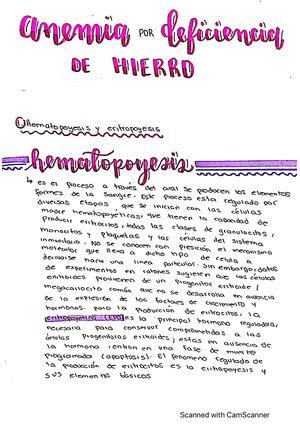 anemia POR deficiencia
DE HIERRO
① Hematopoyesis y eritropoyesis
hematopoyesis
↳ es el proceso a través del cual se producen los elementos
formes de la sangre. Este proceso esta regulado por
diversas etapas que se inician con las células
madre hematopoyéticas, que tienen la capacidad de
producir eritrocitos, todas las clases de granulocitos,
monocitos y plaquetas y las células del sistema
inmunitario. No se conoce con precisión el mecanismo
molecular que lleva a dicho tipo de célula a
derivarse hacia una línea particular. Sin embargo, datos
de experimentos en ratones sugieren que las células
eritroides provienen de un progenitor eritroide /
megacariocito común que no se desarrolla en ausencia
de la expresión de los factores de crecimiento y
hormonas. para la producción de eritrocitos, la
eritropoyetina (EPO) es la principal hormona reguladora,
necesaria para conservar comprometidas a las
células progenitoras eritroides; estas en ausencia de
la hormona, entran en una fase de muerte
programada (apoptosis). El fenómeno regulado de
la producción de eritrocitos es la eritropoyesis y
sus elementos básicos
Scanned with CamScanner